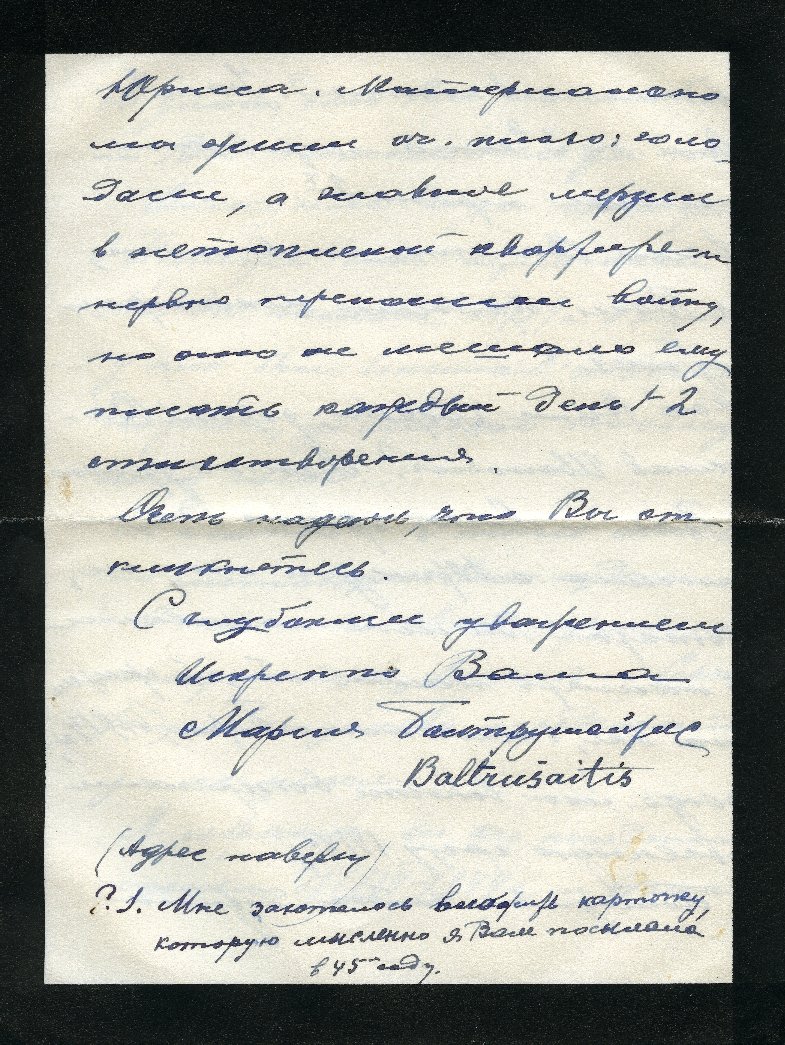 Юриса. Материально
мы жили оч. плохо: голо-
дали, а главное мерзли
в нетопленой квартире и
нервно переносили войну,
но это не мешало ему
писать каждый день 1-2
стихотворения.
Очень надеюсь, что Вы от-
кликнетесь.
С глубоким уважением
Искренно Ваша
Мария Балтрушайтис
Baltrušaitis
(Адрес наверху)
P.S. Мне захотелось карточку,
которую мысленно я Вам посылала
в 45 году.